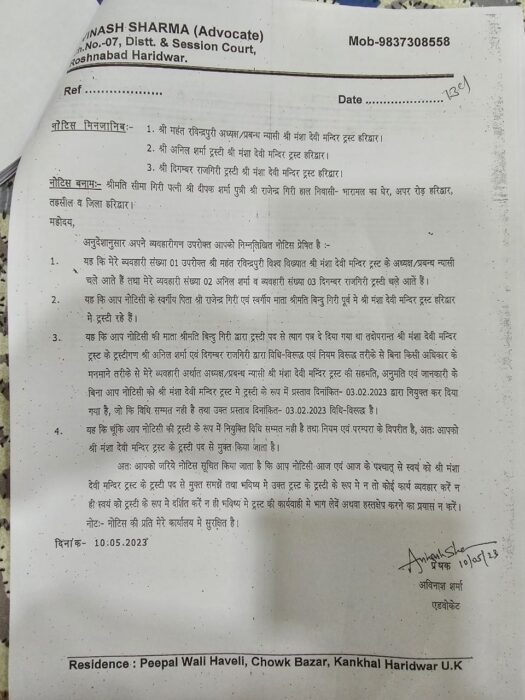 VINASH SHARMA (Advocate)
Ch.No.-07, Distt. & Session Court,
Roshnabad Haridwar.
Mob-9837308558
Ref ...................
Date .....................
नोटिस मिनजानिबः- 1. श्री महंत रविन्द्रपुरी अध्यक्ष/प्रबन्ध न्यासी श्री मंशा देवी मन्दिर ट्रस्ट हरिद्वार।
2. श्री अनिल शर्मा ट्रस्टी श्री मंशा देवी मन्दिर ट्रस्ट हरिद्वार।
3. श्री दिगम्बर राजगिरी ट्रस्टी श्री मंशा देवी मन्दिर ट्रस्ट हरिद्वार।
नोटिस बनामः- श्रीमति सीमा गिरी पत्नी श्री दीपक शर्मा पुत्री श्री राजेन्द्र गिरी हाल निवासी- भारामल का घेर, अपर रोड़ हरिद्वार,
तहसील व जिला हरिद्वार।
महोदय,
अनुदेशानुसार अपने व्यवहारीगण उपरोक्त आपको निम्नलिखित नोटिस प्रेषित है :-
1. यह कि मेरे व्यवहारी संख्या 01 उपरोक्त श्री महंत रविन्द्रपुरी विश्व विख्यात श्री मंशा देवी मन्दिर ट्रस्ट के अध्यक्ष/प्रबन्ध न्यासी
चले आते हैं तथा मेरे व्यवहारी संख्या 02 अनिल शर्मा व व्यवहारी संख्या 03 दिगम्बर राजगिरी ट्रस्टी चले आते हैं।
2. यह कि आप नोटिसी के स्वर्गीय पिता श्री राजेन्द्र गिरी एवं स्वर्गीय माता श्रीमति बिन्दु गिरी पूर्व मे श्री मंशा देवी मन्दिर ट्रस्ट हरिद्वार
मे ट्रस्टी रहे हैं।
3. यह कि आप नोटिसी की माता श्रीमति बिन्दु गिरी द्वारा ट्रस्टी पद से त्याग पत्र दे दिया गया था तदोपरान्त श्री मंशा देवी मन्दिर
ट्रस्ट के ट्रस्टीगण श्री अनिल शर्मा एवं दिगम्बर राजगिरी द्वारा विधि-विरूद्ध एवं नियम विरूद्ध तरीके से बिना किसी अधिकार के
मनमाने तरीके से मेरे व्यवहारी अर्थात अध्यक्ष/प्रबन्ध न्यासी श्री मंशा देवी मन्दिर ट्रस्ट की सहमति, अनुमति एवं जानकारी के
बिना आप नोटिसी को श्री मंशा देवी मन्दिर ट्रस्ट मे ट्रस्टी के रूप में प्रस्ताव दिनांकित- 03.02.2023 द्वारा नियुक्त कर दिया
गया है, जो कि विधि सम्मत नही है तथा उक्त प्रस्ताव दिनांकित- 03.02.2023 विधि-विरूद्ध है।
4. यह कि चूंकि आप नोटिसी की ट्रस्टी के रूप में नियुक्ति विधि सम्मत नही है तथा नियम एवं परम्परा के विपरीत है, अतः आपको
श्री मंशा देवी मन्दिर ट्रस्ट के ट्रस्टी पद से मुक्त किया जाता है।
अतः आपको जरिये नोटिस सूचित किया जाता है कि आप नोटिसी आज एवं आज के पश्चात् से स्वयं को श्री मंशा
देवी मन्दिर ट्रस्ट के ट्रस्टी पद से मुक्त समझें तथा भविष्य मे उक्त ट्रस्ट के ट्रस्टी के रूप मे न तो कोई कार्य व्यवहार करें न
ही स्वयं को ट्रस्टी के रूप मे दर्शित करें न ही भविष्य मे ट्रस्ट की कार्यवाही मे भाग लेवें अथवा हस्तक्षेप करने का प्रयास न करें।
नोटः- नोटिस की प्रति मेरे कार्यालय मे सुरक्षित है।
दिनांक- 10.05.2023
प्रेषक 10/05/23
अविनाश शर्मा
एडवोकेट
Residence : Peepal Wali Haveli, Chowk Bazar, Kankhal Haridwar U.K